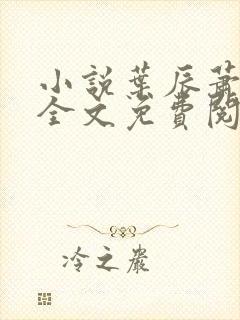 小說葉辰蕭
全文免費閱
冷之巖